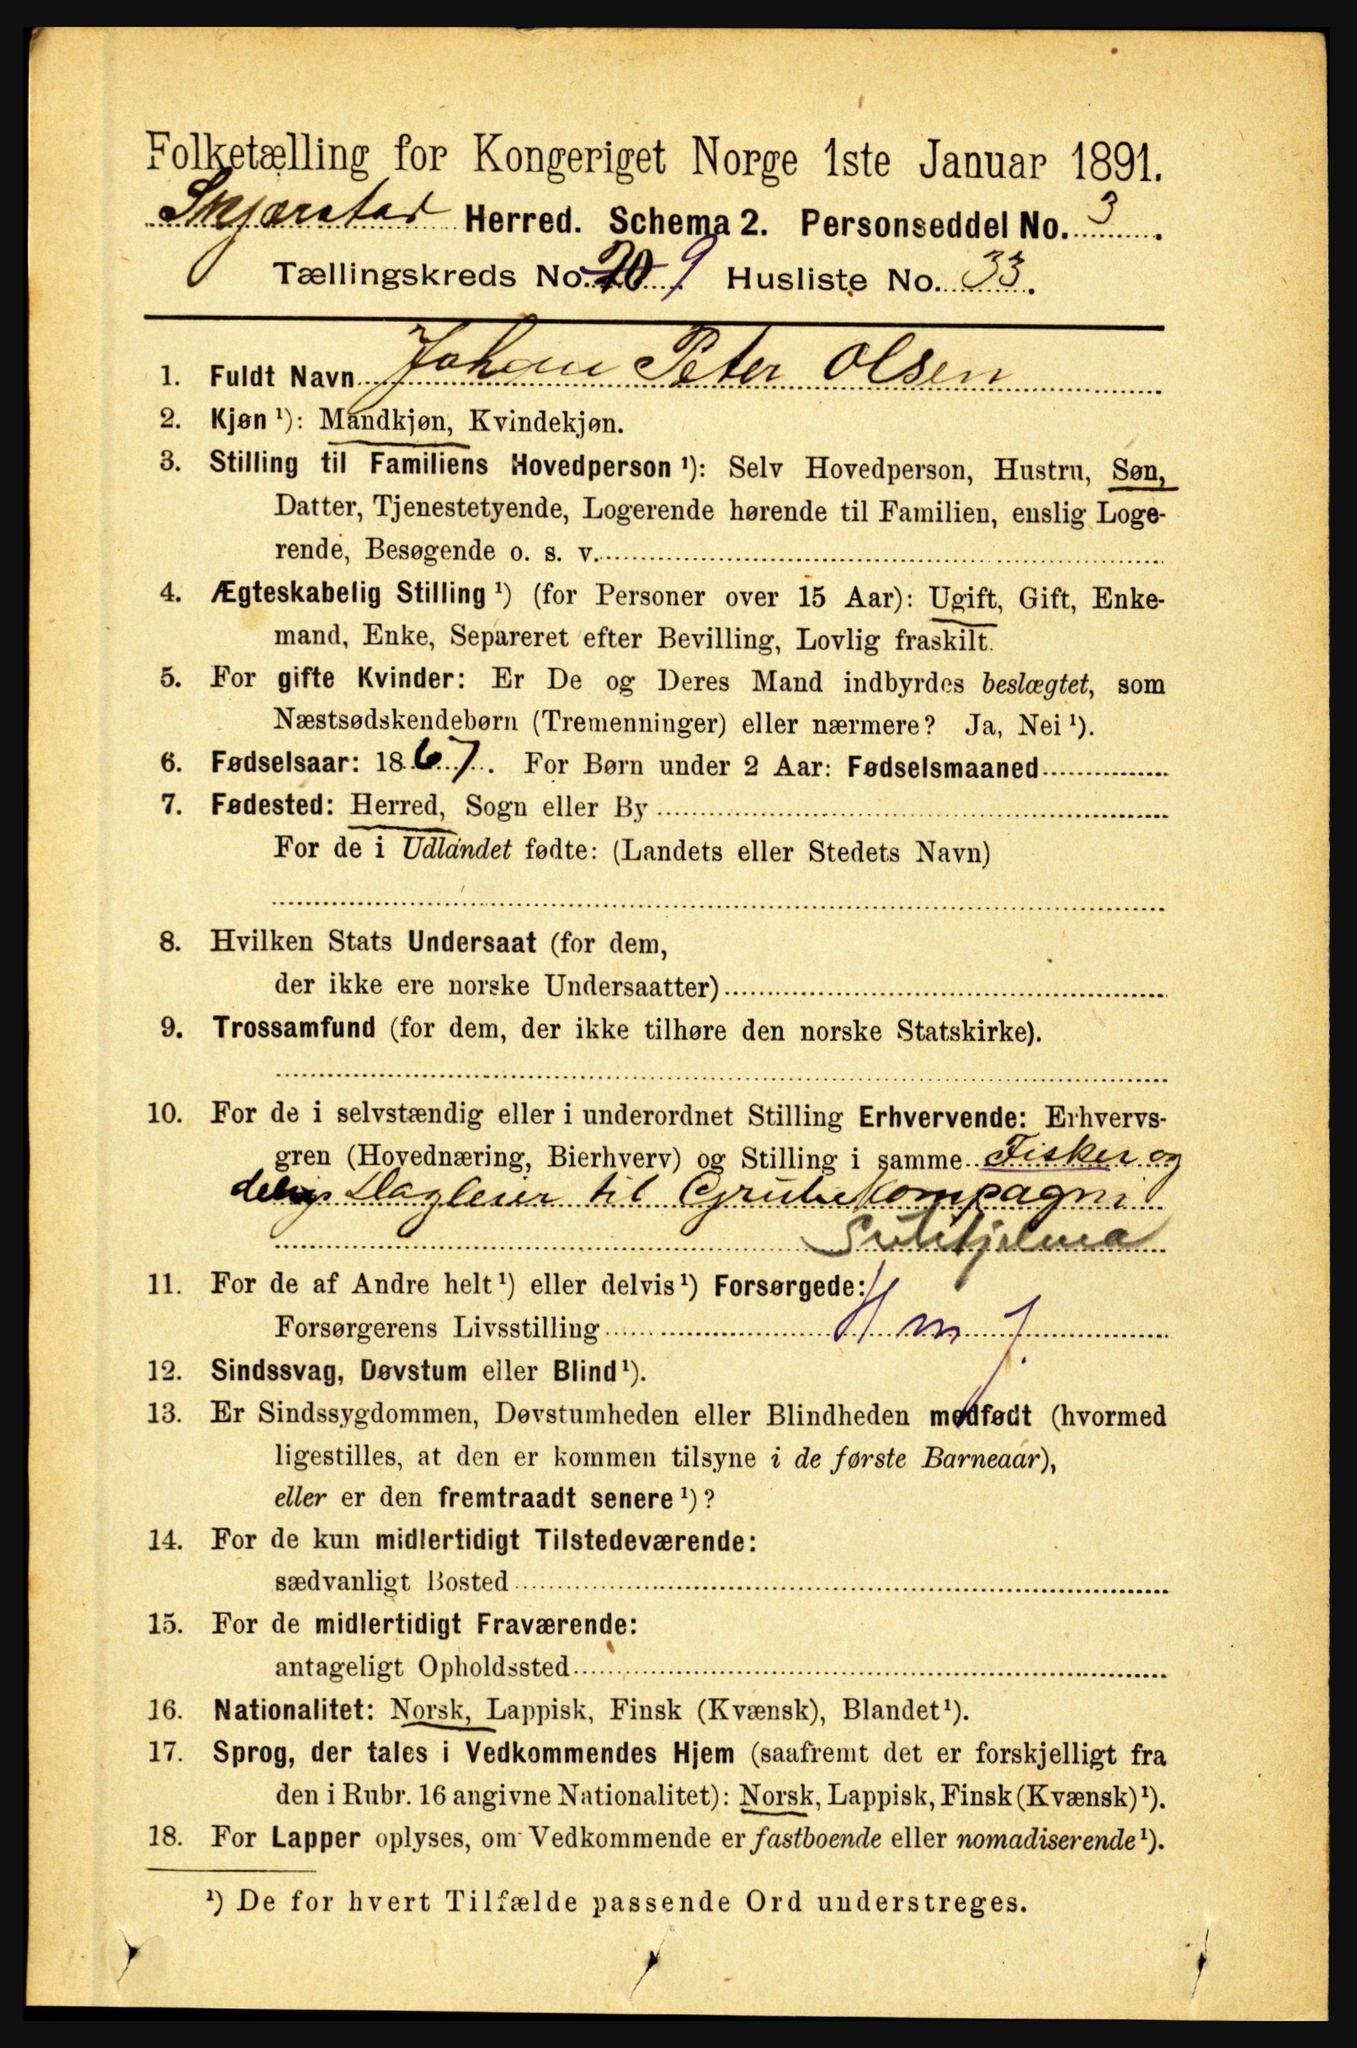 Folketælling for Kongeriget Norge 1ste Januar 1891.
Skjærstad Herred. Schema 2. Personseddel No. 3.
Tællingskreds No. 9 Husliste No. 33.
1. Fuldt Navn Johan Peter Olsen
2. Kjøn ¹): Mandkjøn, Kvindekjøn.
3. Stilling til Familiens Hovedperson ¹): Selv Hovedperson, Hustru, Søn,
Datter, Tjenestetyende, Logerende hørende til Familien, enslig Loge-
rende, Besøgende o. s. v.
4. Ægteskabelig Stilling ¹) (for Personer over 15 Aar): Ugift, Gift, Enke-
mand, Enke, Separeret efter Bevilling, Lovlig fraskilt.
5. For gifte Kvinder: Er De og Deres Mand indbyrdes beslægtet, som
Næstsødskendebørn (Tremenninger) eller nærmere? Ja, Nei ¹).
6. Fødselsaar: 1867. For Børn under 2 Aar: Fødselsmaaned
7. Fødested: Herred, Sogn eller By
For de i Udlandet fødte: (Landets eller Stedets Navn)
8. Hvilken Stats Undersaat (for dem,
der ikke ere norske Undersaatter)
9. Trossamfund (for dem, der ikke tilhøre den norske Statskirke).
10. For de i selvstændig eller i underordnet Stilling Erhvervende: Erhvervs-
gren (Hovednæring, Bierhverv) og Stilling i samme Fisker og
Dagleier til Grubekompagni
Sulitjelma
11. For de af Andre helt ¹) eller delvis ¹) Forsørgede:
Forsørgerens Livsstilling H m J.
12. Sindssvag, Døvstum eller Blind ¹).
13. Er Sindssygdommen, Døvstumheden eller Blindheden medfødt (hvormed
ligestilles, at den er kommen tilsyne i de første Barneaar),
eller er den fremtraadt senere ¹)?
14. For de kun midlertidigt Tilstedeværende:
sædvanligt Bosted
15. For de midlertidigt Fraværende:
antageligt Opholdssted
16. Nationalitet: Norsk, Lappisk, Finsk (Kvænsk), Blandet ¹).
17. Sprog, der tales i Vedkommendes Hjem (saafremt det er forskjelligt fra
den i Rubr. 16 angivne Nationalitet): Norsk, Lappisk, Finsk (Kvænsk) ¹).
18. For Lapper oplyses, om Vedkommende er fastboende eller nomadiserende ¹).
¹) De for hvert Tilfælde passende Ord understreges.